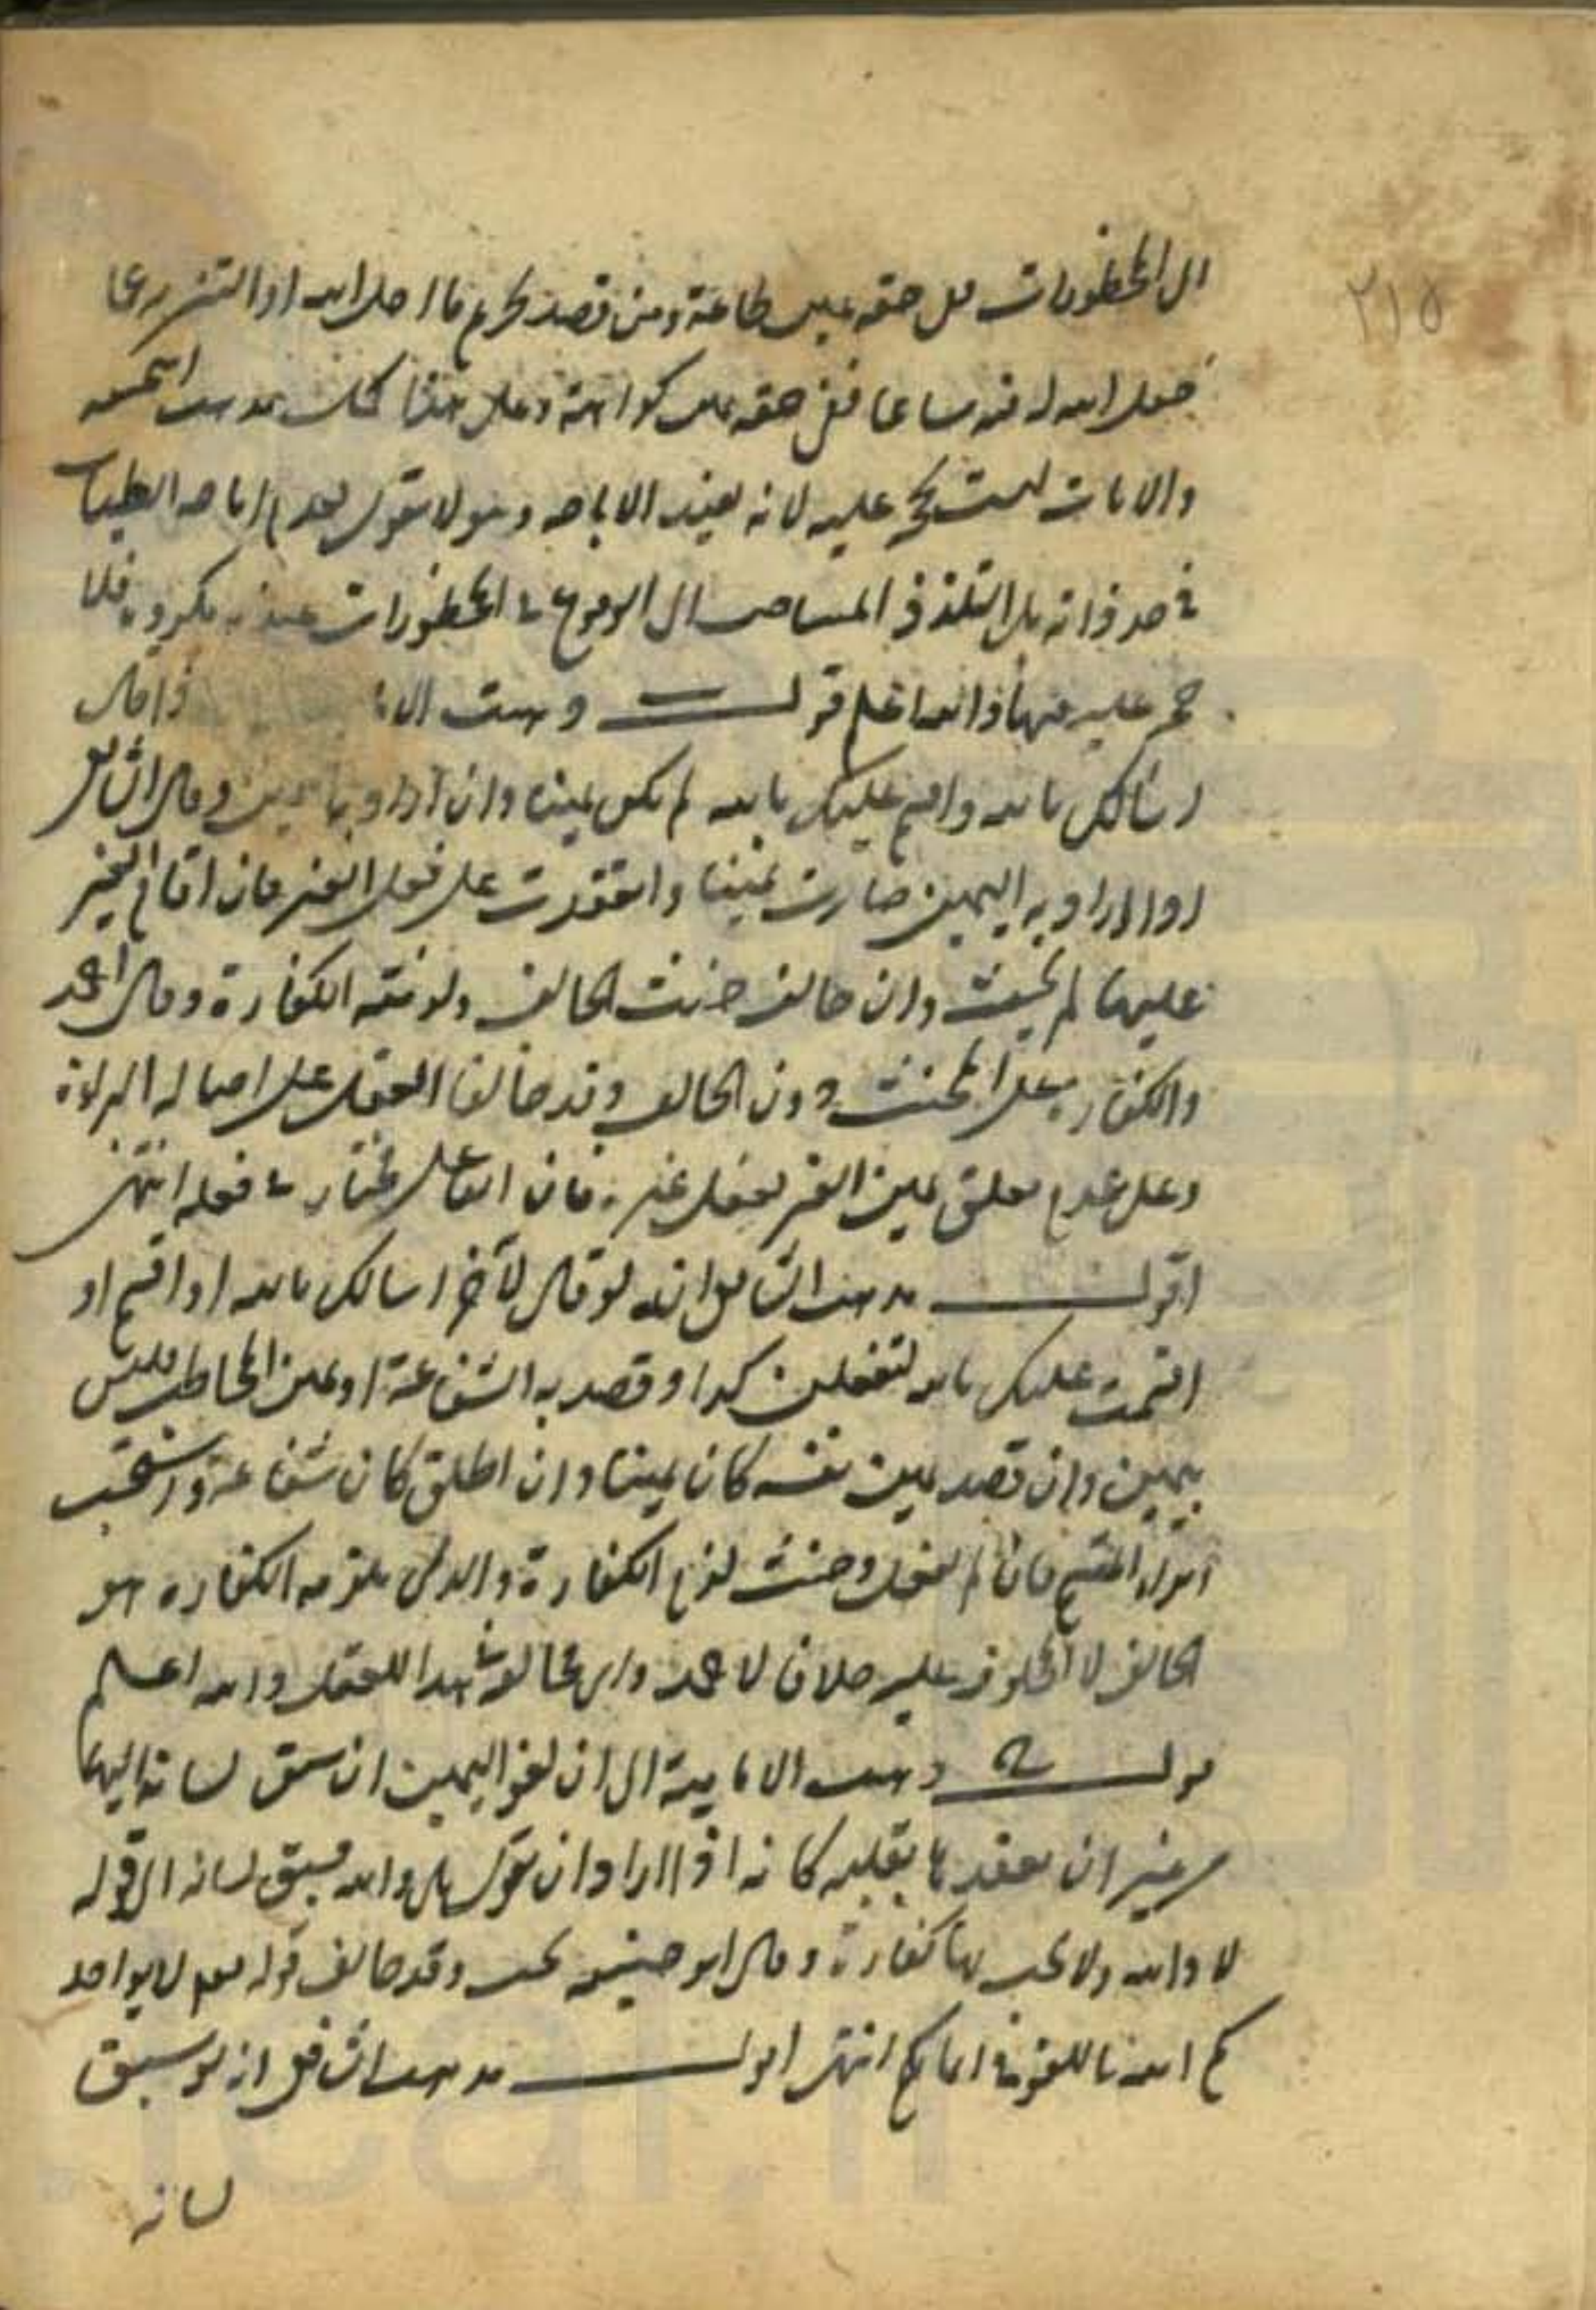 ٢١٥
الى المحظورات ففي حقه يمين طاعة ومن قصد تحريم ما احل الله او التنزه عما
جعل الله له فيه مساغا ففي حقه يمين كراهة وعلى هذا كان مذهب ابي حنيفة
والايات ليست بحجة عليه لانه يفيد الاباحة وهو لا يقول بعدم اباحة الطيبات
في حد ذاته بل التلذذ في المباحات الى الوقوع في المحظورات عنده مكروه فلا
حجة عليه فيها والله اعلم قوله وذهبت الا اذا قال
اسالك بالله واقسم عليك بالله لم يكن يمينا وان اراد بها اليمين وقال الشافعي
اذا اراد به اليمين صارت يمينا وانعقدت على فعل الغير فان اقام الغير
عليها لم يحنث وان خالف حنث الحالف ولزمته الكفارة وقال احمد
والكفارة على المحنث دون الحالف وقد خالفا العقل على اصالة البراءة
وعلى عدم تعلق يمين الغير بفعل غيره فان الفاعل مختار في فعله انتهى
اقول مذهب الشافعي انه لو قال لآخر اسالك بالله او اقسم او
اقسمت عليك بالله لتفعلن كذا وقصد به الشفاعة او يمين المخاطب فليس
بيمين وان قصد يمين نفسه كان يمينا وان اطلق كان شفاعة ويستحب
ابرار المقسم فان لم يفعل وحنث لزم الكفارة والذي يلزمه الكفارة هو
الحالف لا المحلوف عليه خلافا لاحمد واي مخالفة في هذا للعقل والله اعلم
قوله ذهبت الامامية الى ان لغو اليمين ان سبق لسانه اليها
من غير ان يعقدها بقلبه كانه اذا اراد ان يقول بلى والله فسبق لسانه الى قوله
لا والله ولا يجب بها كفارة وقال ابو حنيفة يجب وقد خالف قوله تعالى لا يواخذ
كم الله باللغو في ايمانكم انتهى اقول مذهب الشافعي انه لو سبق
لسانه